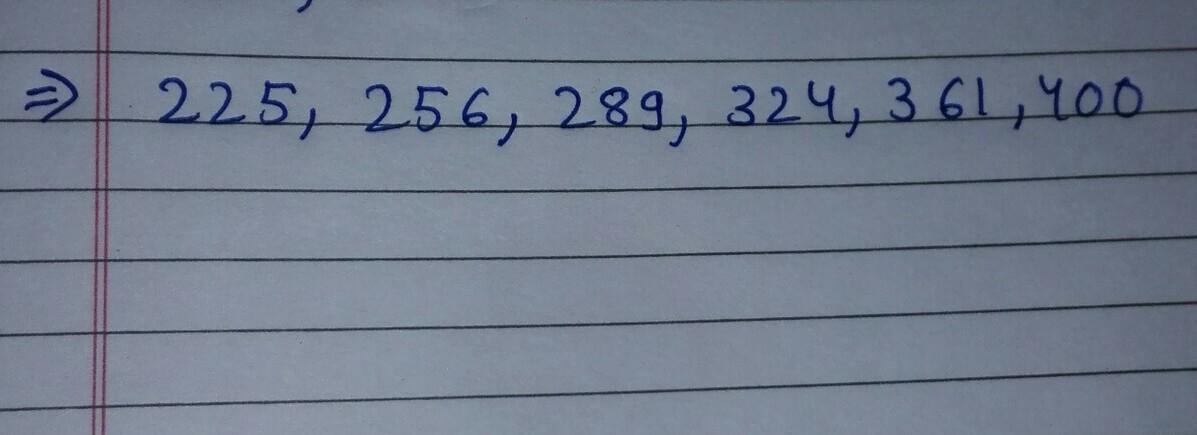 ⇒ 225, 256, 289, 324, 361, 400